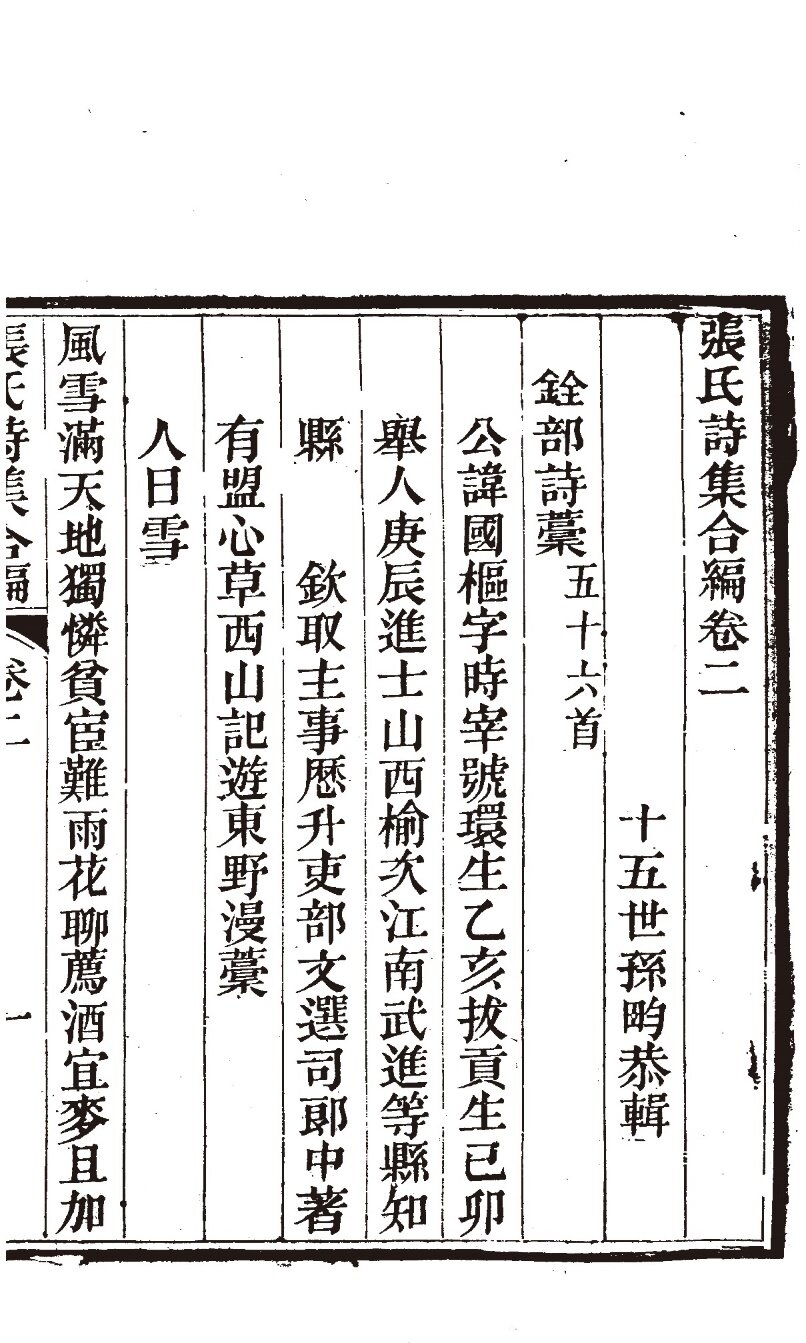 張氏詩集合編卷二
十五世孫畇恭輯
銓部詩藳五十六首
公諱國樞字時宰號環生乙亥拔貢生己卯
舉人庚辰進士山西榆次江南武進等縣知
縣 欽取主事歷升吏部文選司郎中著
有盟心草西山記遊東野漫藳
人日雪
風雪滿天地獨憐貧宦難雨花聊薦酒宜麥且加
張氏詩集合編 卷二 一